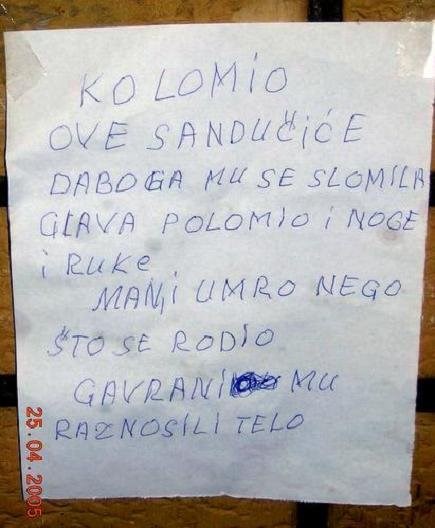 KO LOMIO
OVE SANDUČIĆE
DABOGA MU SE SLOMILA
GLAVA POLOMIO i NOGE
i RUKE
MANJI UMRO NEGO
ŠTO SE RODIO
GAVRANI MU
RAZNOSILI TELO
25.04.2005